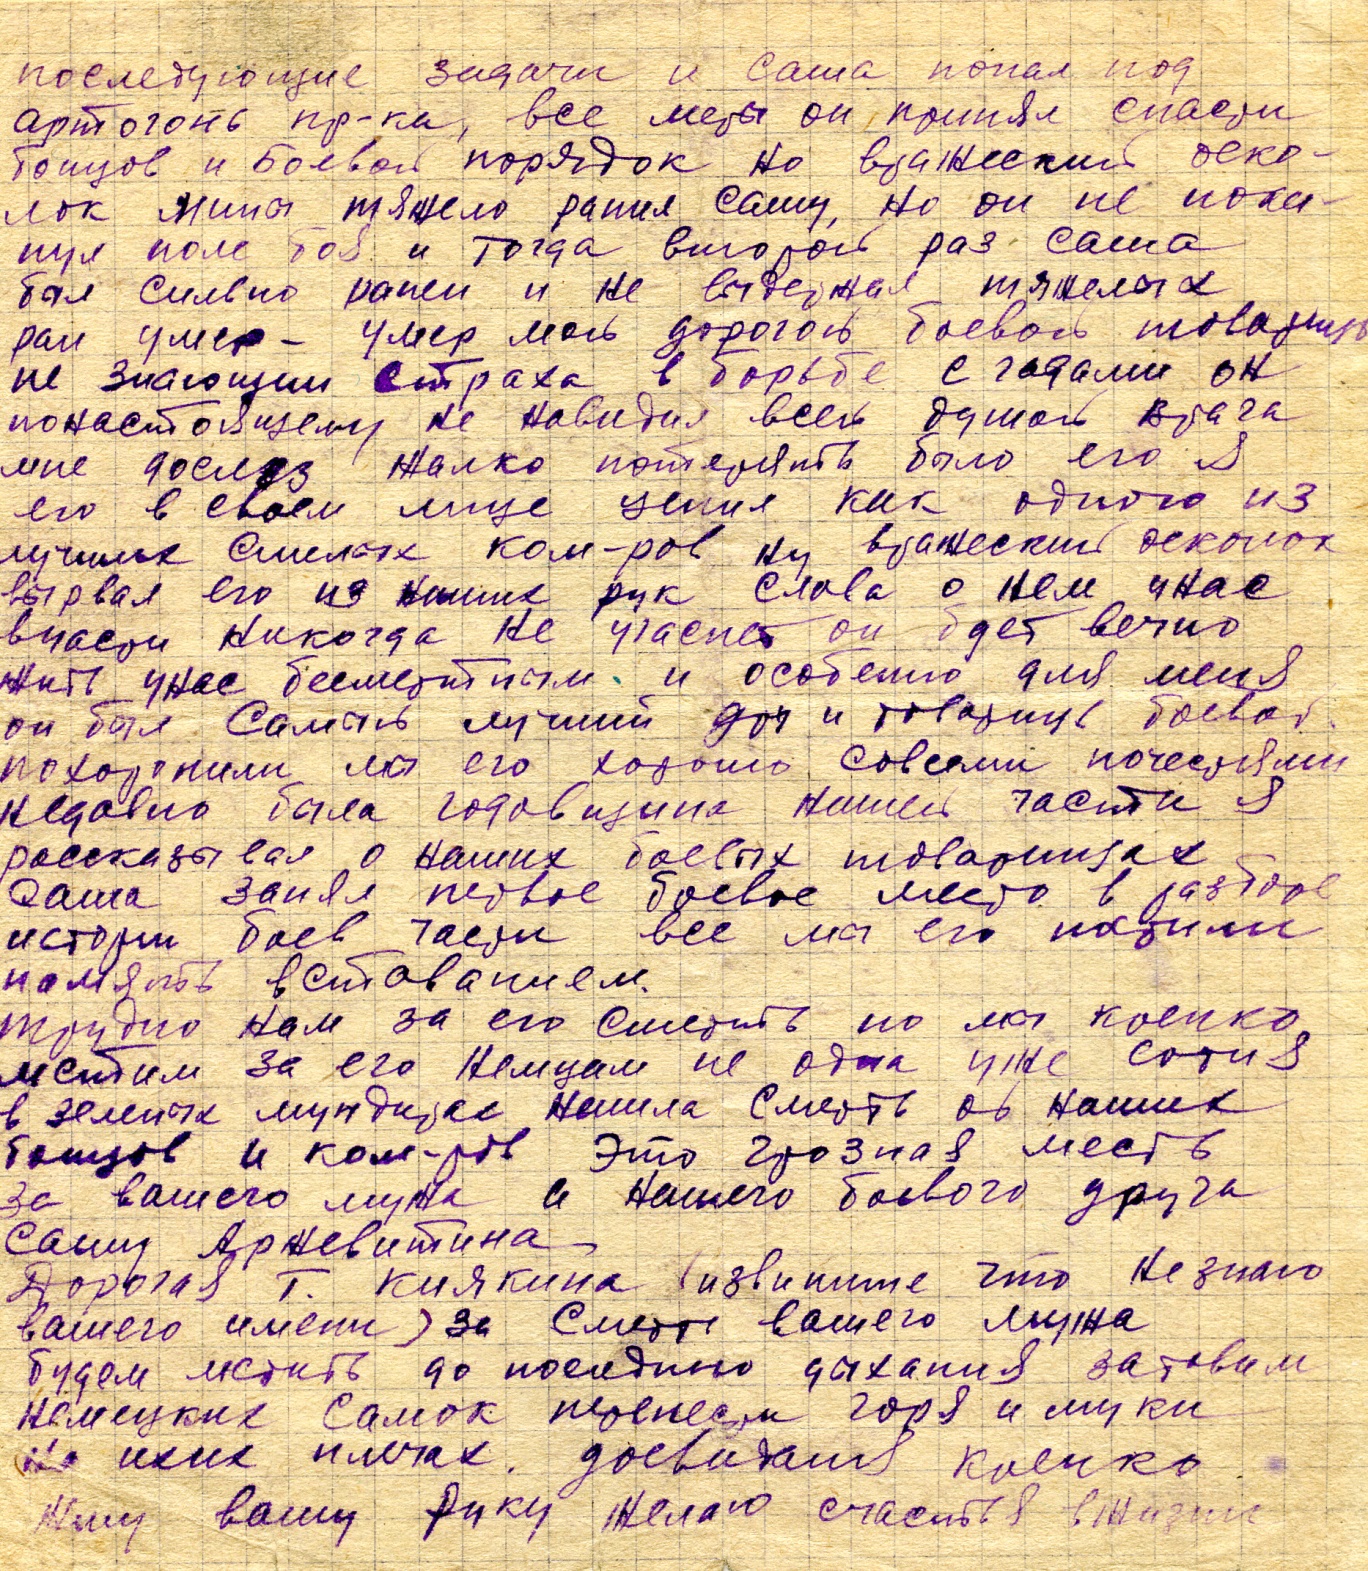 последующие задачи и Саша попал под
артогонь пр-ка, все меры он принял спасти
бойцов и Боевой порядок но вражеский оско-
лок мины тяжело ранил Сашу, но он не поки-
нул поле боя и тогда второй раз Саша
был сильно ранен и не выдержал тяжелых
ран умер – умер мой дорогой боевой товарищ
не знающий страха в борьбе с гадами он
понастоящему не навидил всей душой врага
мне дослёз жалко потерять было его я
его в своем лице ценил как одного из
лучших смелых ком-ров ну вражеский осколок
вырвал его из наших рук слава о нем унас
вчасти никогда не угаснет он бдет вечно
жить унас бессмертным. и особенно для меня
он был Самый лучший друг и товарищ боевой.
похоронили мы его хорошо совсеми почестями
недавно была годовщина нашей части я
рассказывал о наших боевых товарищах
Саша занял первое боевое место в разборе
истории боев части все мы его почтили
память вставанием.
трудно нам за его смерть но мы крепко
мстим за его Немцам не одна уже сотня
в зеленых мундирах нашла смерть от наших
бойцов и ком-ров Это грозная месть
за вашего мужа и нашего боевого друга
Сашу Аржевитина
Дорогая Т. Килякина (извините что незнаю
вашего имени) за Смерть вашего мужа
будем мстить до последнего дыхания заставим
немецких самок перенести горя и муки
на ихих плечах. досвидания крепко
Жму вашу Руку желаю счастья вжизни